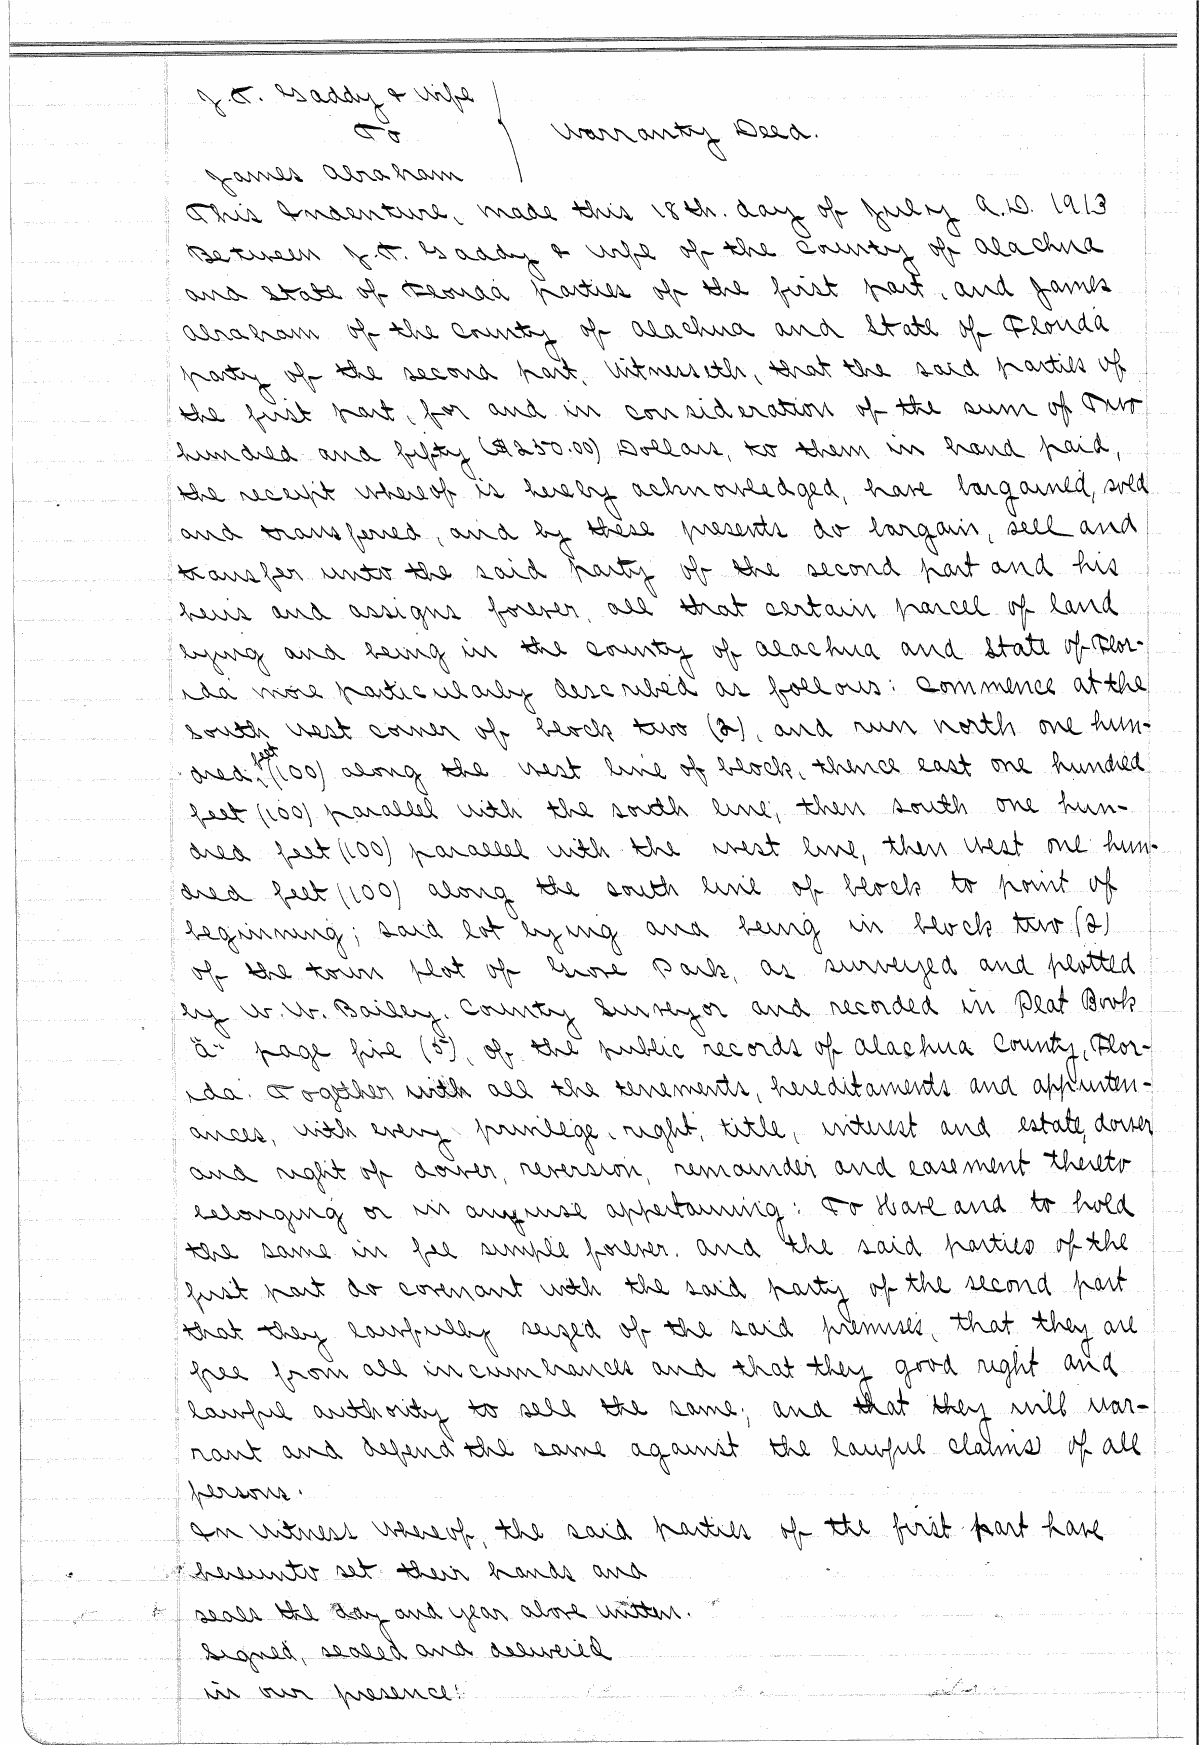 J.T. Gaddy & Wife
To
Warranty Deed.
James Abraham
This Indenture, made this 18th. day of July A.D. 1913
Between J.T. Gaddy & Wife of the County of Alachua
and State of Florida parties of the first part, and James
Abraham of the County of Alachua and State of Florida
party of the second part, Witnesseth, that the said parties of
the first part, for and in consideration of the sum of Two
hundred and fifty ($250.00) Dollars, to them in hand paid,
the receipt whereof is hereby acknowledged, have bargained, sold
and transferred, and by these presents do bargain, sell and
transfer unto the said party of the second part and his
heirs and assigns forever, all that certain parcel of land
lying and being in the County of Alachua and State of Flor-
ida more particularly described as follows: Commence at the
South West corner of block two (2), and run north one hun-
dred, feet (100) along the west line of block, thence east one hundred
feet (100) parallel with the south line, then south one hun-
dred feet (100) parallel with the west line, then West one hun-
dred feet (100) along the south line of block to point of
beginning; said lot lying and being in block two (2)
of the town plot of Grove Park, as surveyed and plotted
by W.W. Bailey. County Surveyor and recorded in Plat Book
"A" page five (5), of the public records of Alachua County, Flor-
ida. Together with all the tenements, hereditaments and appurten-
ances, with every privilege, right, title, interest and estate, dower
and right of dower, reversion, remainder and easement thereto
belonging or in anywise appertaining: To Have and to hold
the same in fee simple forever. And the said parties of the
first part do covenant with the said party of the second part
that they lawfully seized of the said premises, that they are
free from all incumbrances and that they good right and
lawful authority to sell the same; and that they will war-
rant and defend the same against the lawful claims of all
persons.
In Witness Whereof, the said parties of the first part have
hereunto set their hands and
seals the day and year above written.
Signed, sealed and delivered
in our presence: